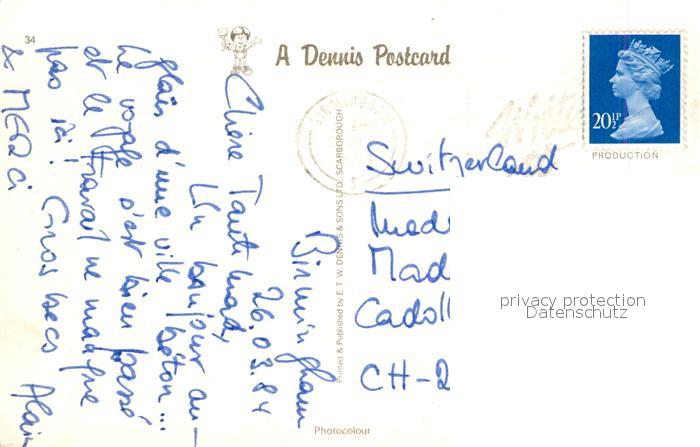 34
A Dennis Postcard
BIRMINGHAM
20½P
PRODUCTION
Birmingham
26.03.84
Chère Tante Mady
Un bonjour au-
d'une ville béton...
Le voyage s'est bien passé
et le travail ne manque
pas ici! Gros becs
& MERCI Alain
Printed & Published by E. T. W. DENNIS & SONS LTD., SCARBOROUGH
Switzerland
Mad
CH-2
privacy protection
Datenschutz
Photocolour